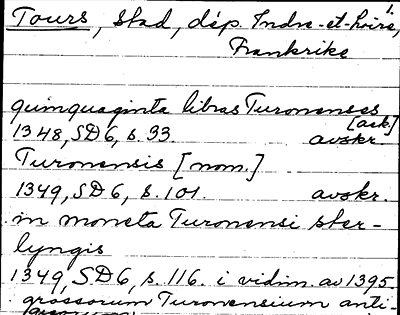 1.
Tours, stad, dép. Indre-et-Loire,
Frankrike
quinquaginta libras Turonenses
[ack.]
1348, SD 6, s. 93. avskr.
Turonensis [nom.]
1349, SD 6, s. 101. avskr.
in moneta Turonensi ster-
lyngis
1349, SD 6, s. 116. i vidim. av 1395.
grossorum Turonensium anti-